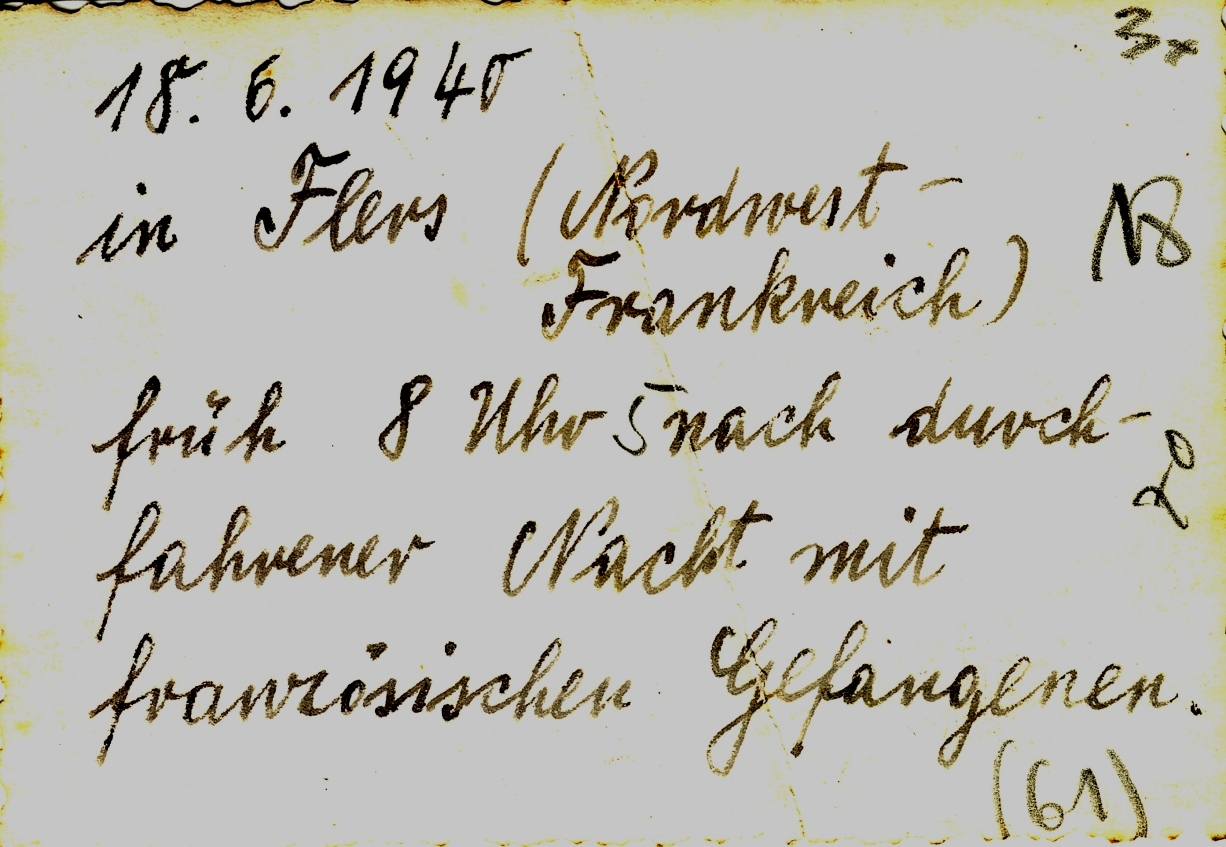 3x
18. 6. 1940
in Flers (Nordwest-
Frankreich)
früh 8 Uhr 5 nach durch-
fahrener Nacht mit
französischen Gefangenen.
(61)